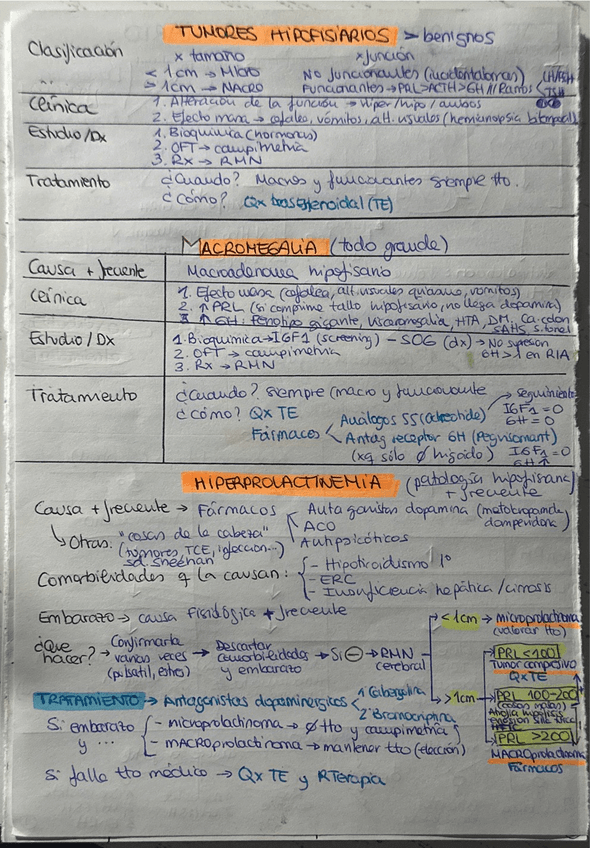 TUMORES HIPOFISIARIOS > benignos
Clasificación
x tamaño
x función
< 1cm → MICRO
> 1cm → MACRO
No funcionantes (incidentalomas)
Funcionantes → PRL > ACTH > GH // Raros
LH/FSH
TSH
Clínica
1. Alteración de la función → hiper/hipo/ambos
2. Efecto masa → cefalea, vómitos, alt. visuales (hemianopsia bitemporal)
Estudio/Dx
1. Bioquímica (hormonas)
2. OFT → campimetría
3. Rx → RMN
Tratamiento
¿Cuándo? Macros y funcionantes siempre tto.
¿Cómo? Qx trasesfenoidal (TE)
MACROMEGALIA (todo grande)
Causa + frecuente
Macroadenoma hipofisario
Clínica
1. Efecto masa (cefalea, alt. visuales quiasma, vómitos)
2. ↑ PRL (si comprime tallo hipofisario, no llega dopamina)
3. ↑ GH: Fenotipo gigante, visceromegalia, HTA, DM, Ca colon
SAHS, s. túnel
Estudio / Dx
1. Bioquímica → IGF1 (screening) – SOG (dx) → No supresión
GH > 1 en RIA
2. OFT → campimetría
3. Rx → RMN
Tratamiento
¿Cuándo? siempre (macro y funcionante
¿Cómo? QX TE
Fármacos
Análogos SS (octreotide)
→ Seguimiento
IGF1 = 0
GH = 0
Antag receptor GH (Pegvisomant)
(xq sólo Ø hígado)
IGF1 = 0
GH ↑
HIPERPROLACTINEMIA (patología hipofisaria
+ frecuente
Causa + frecuente → Fármacos
Antagonistas dopamina (metoclopramida
domperidona)
ACO
Antipsicóticos
Otras: "cosas de la cabeza"
(tumores, TCE, infección...)
sd. Sheehan
Comorbilidades q la causan:
- Hipotiroidismo 1º
- ERC
- Insuficiencia hepática / cirrosis
Embarazo → causa fisiológica + frecuente
¿Qué hacer? → Confirmarla varias veces (pulsátil, estrés) → Descartar comorbilidades y embarazo → Si ⊖ → RMN cerebral
< 1cm → microprolactinoma
(valorar tto)
> 1cm
PRL < 100
Tumor compresivo
QX TE
PRL 100-200
(cosas malas)
PRL > 200
MACROprolactinoma
Fármacos
TRATAMIENTO → Antagonistas dopaminérgicos
1º Cabergolina
2º Bromocriptina
Si embarazo y ...
- microprolactinoma → Ø tto y campimetría
- MACROprolactinoma → mantener tto (elección)
Si falla tto médico → QX TE y RTerapia